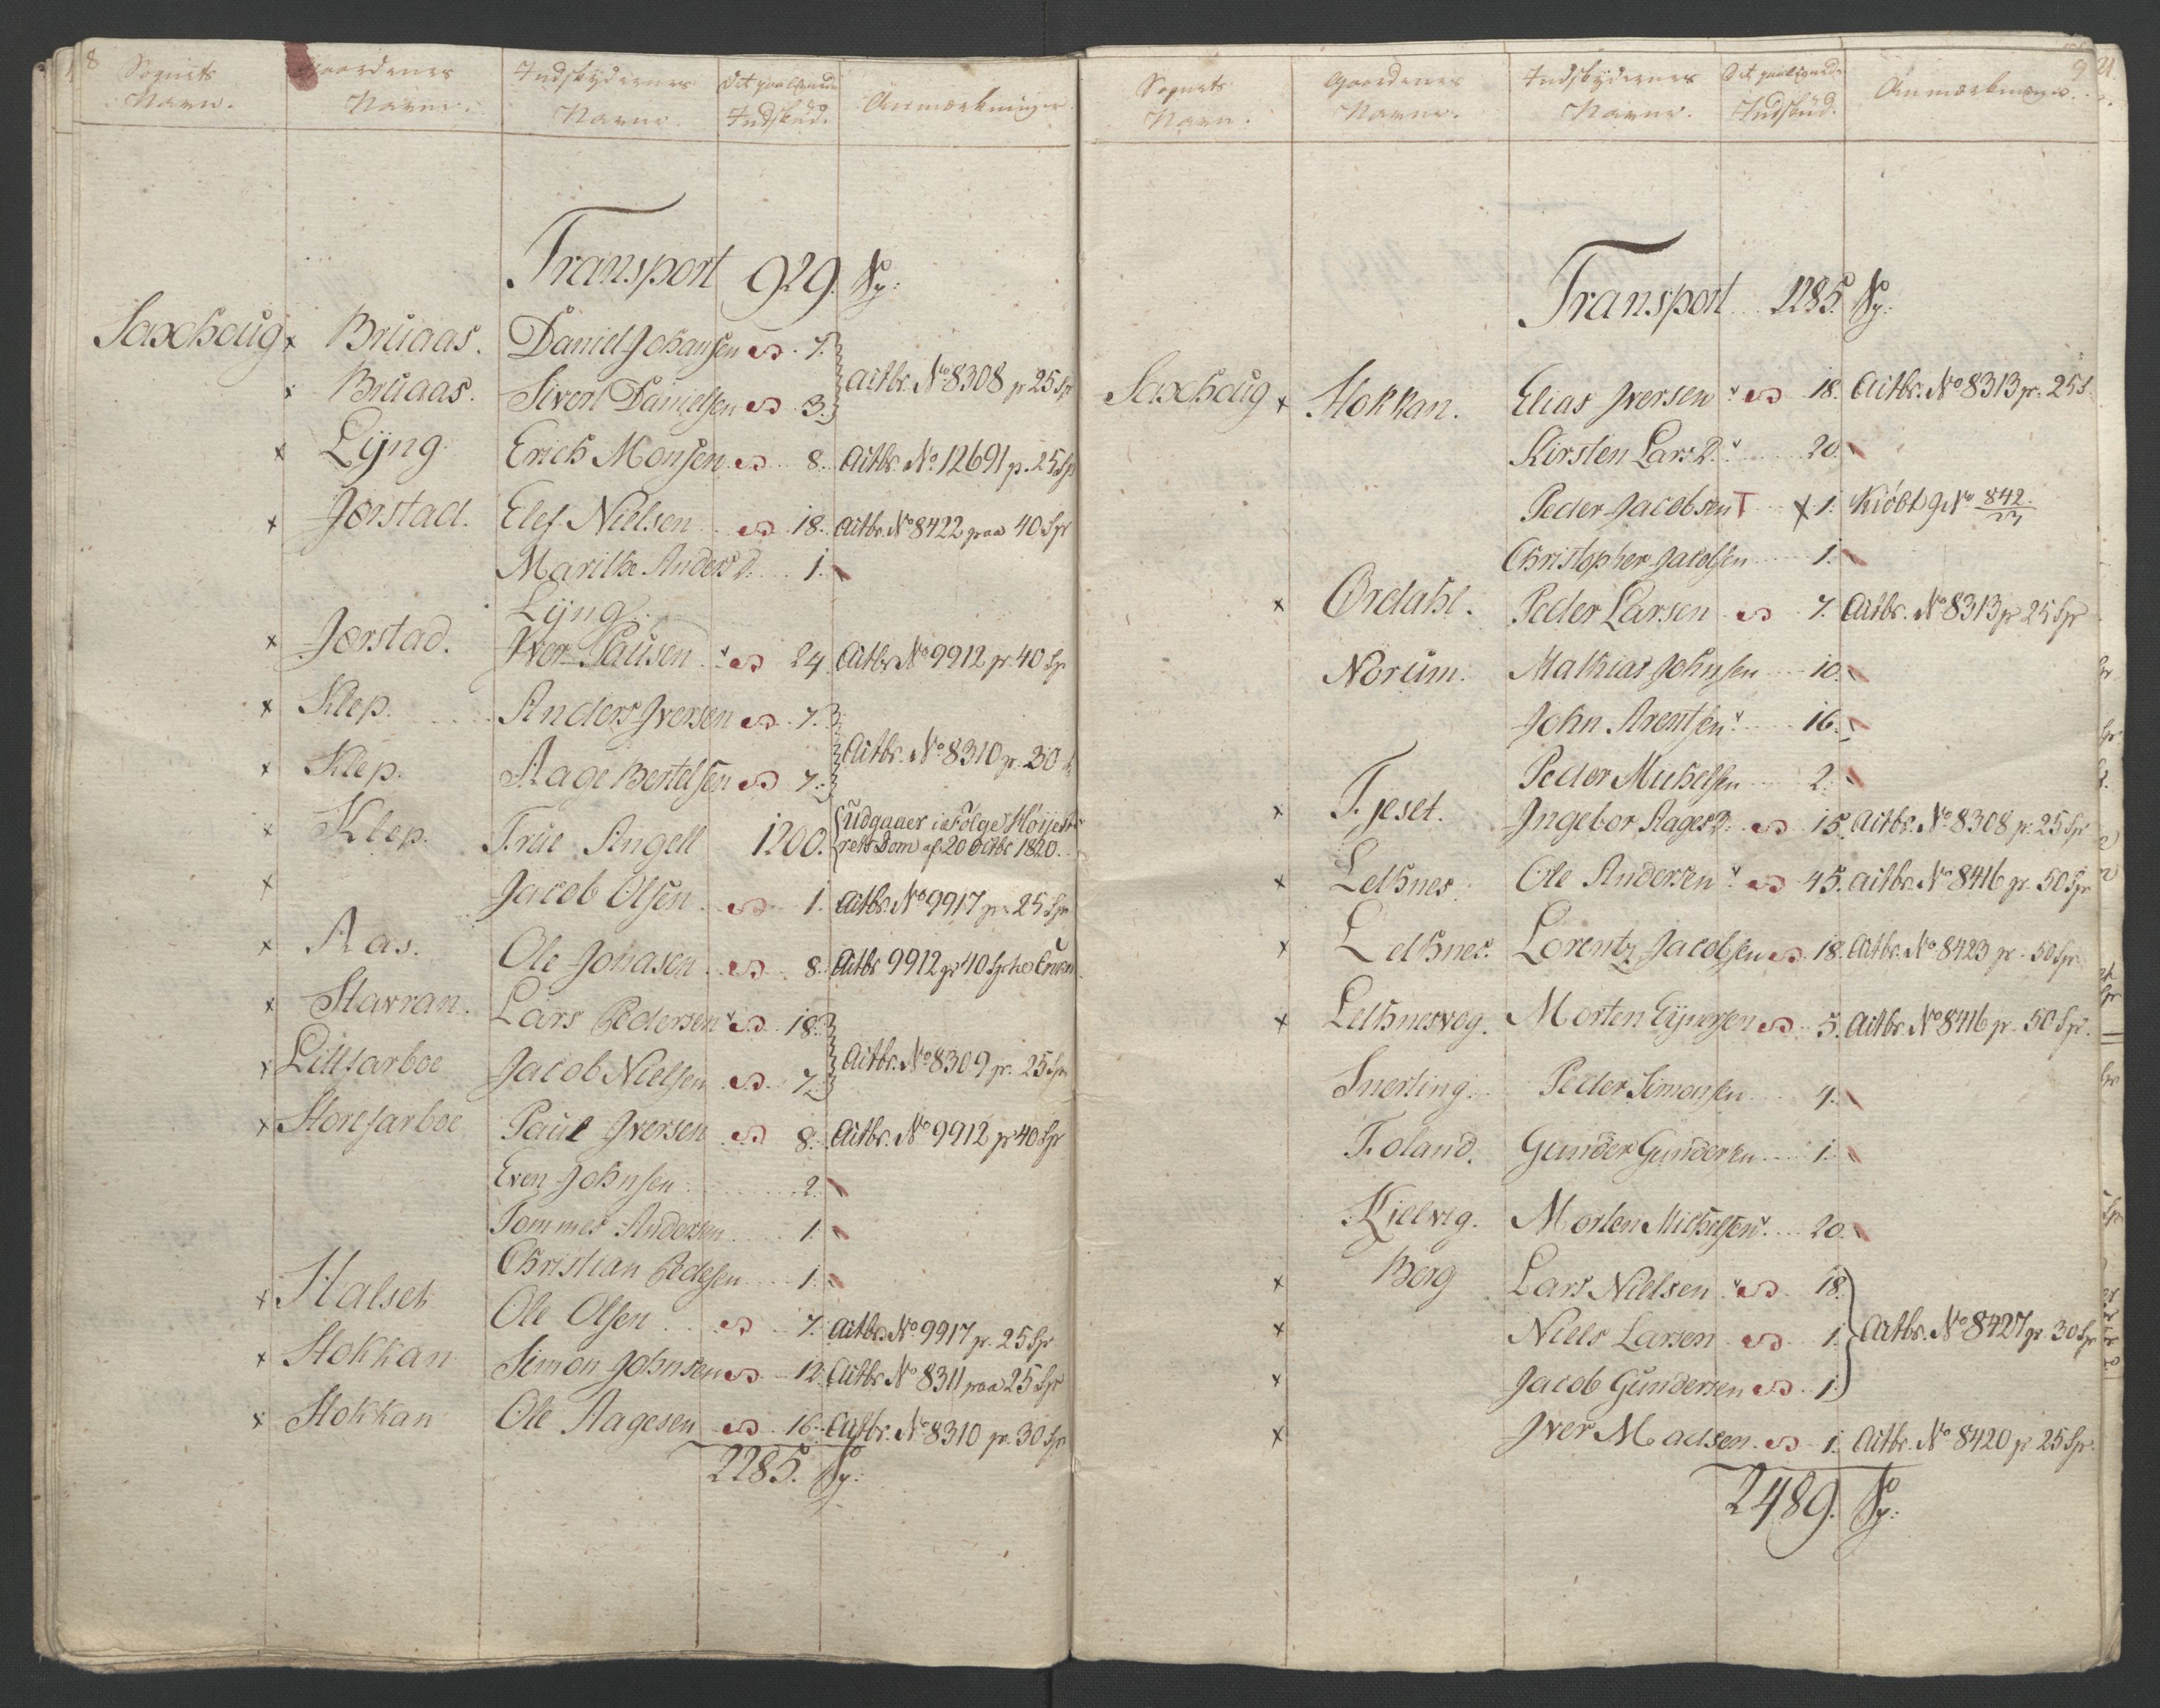 8
Sognets Navn. Gaardenes Navne. Indskydernes Navne. Det paalignede Indskud. Anmærkninger.
Transport 929. Sp:
Saxhaug x Bruaas. Daniel Johansen 7.
x Bruaas. Sivert Danielsen 3. Actbr. No 8308 pr 25 Sp
x Lÿng Erich Monsen 8. Actbr. No 12691 p. 25 Sp
x Jørstad. Elef Nielsen 18. Actbr. No 8422 paa 40 Sp
Marithe Anders D. 1.
Lÿng.
x Jørstad. Iver Pausen 24. Actbr No 9912 pr 40 Sp
x Klep. Anders Iversen 7.
x Klep. Aage Bertelsen 7. Actbr. No 8310 pr. 30
x Klep. Frue Angell 1200. Udgaaer i Følge Høÿeste
rets Dom af 20 Octbr 1820.
x Jacob Olsen 1. Actbr. No 9917 pr. 25 Sp
x Aas. Ole Johasen 8. Actbr 9912 pr 40 Sp
x Stavran. Lars Pedersen 18.
x Lillsarboe Jacob Nielsen 7. Actbr. No 8309 pr. 25 Sp
x Storesarboe Paul Iversen 8. Actbr. No 9912 pr 40 Sp
Even Johnsen 2.
Tommes Andersen 1.
Christian Pedesen 1.
x Halset Ole Olsen 7. Actbr No 9917 pr. 25 Sp
x Stokkan Simon Johnsen 12. Actbr No 8311 paa 25 Sp
x Stokkan Ole Aagesen 16. Actbr. No 8310 pr. 30 Sp
2285. Sp:
9
Sognets Navn. Gaardenes Navne. Indskydernes Navne. Det paalignede Indskud. Anmærkninger.
Transport 2285. Sp:
Saxhaug x Stokkan. Elias Iversen 18. Actbr. No 8313 pr. 25 S
Kirsten Lars D. 20.
Peder Jacobsen T x 1. Kiöbt No 842.
Christopher Jacobsen 1.
x Ordahl. Peder Larsen 7. Actbr. No 8313 pr 25 Sp
Norum. Mathias Johnsen 10.
John Arentsen 16.
Peder Michelsen 2.
x Fjeset. Ingebor Aages D. 15. Actbr. No 8308 pr. 25 Sp
x Lethnes Ole Andersen 45. Actbr. No 8416 pr. 50 Sp
x Lethnes. Lorentz Jacobsen 18. Actbr. No 8423 pr. 50 Sp
x Lethnesvog. Morten Eÿnersen 5. Actbr. No 8416 pr. 50 Sp.
Snerting. Peder Simonsen 4.
Foland. Gunder Gundersen 1.
Kjelvig. Morten Michelsen 20.
x Berg Lars Nielsen 18.
x Niels Larsen 1. Actbr. No 8427 pr. 30 Sp
x Jacob Gundersen 1.
x Iver Madsen 1. Actbr. No 8420 p 25 Sp.
2489. Sp: